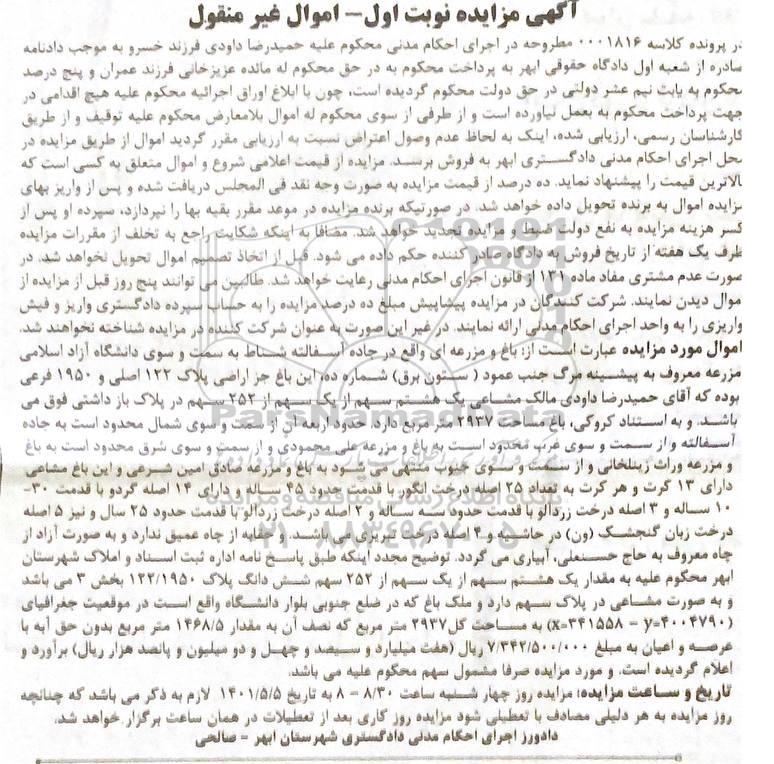 آگهی مزایده نوبت اول- اموال غیر منقول
در پرونده کلاسه ۰۰۰۱۸۱۶ مطروحه در اجرای احکام مدنی محکوم علیه حمیدرضا داودی فرزند خسرو به موجب دادنامه
صادره از شعبه اول دادگاه حقوقی ابهر به پرداخت محکوم به در حق محکوم له مائده عزیزخانی فرزند عمران و پنج درصد
محکوم به بابت نیم عشر دولتی در حق دولت محکوم گردیده است، چون با ابلاغ اوراق اجرائیه محکوم علیه هیچ اقدامی در
جهت پرداخت محکوم به بعمل نیاورده است و از طرفی از سوی محکوم له اموال بلامعارض محکوم علیه توقیف و از طریق
کارشناسان رسمی، ارزیابی شده، اینک به لحاظ عدم وصول اعتراض نسبت به ارزیابی مقرر گردید اموال از طریق مزایده در
محل اجرای احکام مدنی دادگستری ابهر به فروش برسد. مزایده از قیمت اعلامی شروع و اموال متعلق به کسی است که
بالاترین قیمت را پیشنهاد نماید. ده درصد از قیمت مزایده به صورت وجه نقد فی المجلس دریافت شده و پس از واریز بهای
مزایده اموال به برنده تحویل داده خواهد شد. در صورتیکه برنده مزایده در موعد مقرر بقیه بها را نپردازد، سپرده او پس از
کسر هزینه مزایده به نفع دولت ضبط و مزایده تجدید خواهد شد. مضافا به اینکه شکایت راجع به تخلف از مقررات مزایده
ظرف یک هفته از تاریخ فروش به دادگاه صادر کننده حکم داده می شود. قبل از اتخاذ تصمیم اموال تحویل نخواهد شد. در
صورت عدم مشتری مفاد ماده ۱۳۱ از قانون اجرای احکام مدنی رعایت خواهد شد. طالبین می توانند پنج روز قبل از مزایده از
اموال دیدن نمایند. شرکت کنندگان در مزایده پیشاپیش مبلغ ده درصد مزایده را به حساب سپرده دادگستری واریز و فیش
واریزی را به واحد اجرای احکام مدنی ارائه نمایند. در غیر این صورت به عنوان شرکت کننده در مزایده شناخته نخواهند شد.
اموال مورد مزایده عبارت است از: باغ و مزرعه ای واقع در جاده آسفالته شناط به سمت و سوی دانشگاه آزاد اسلامی
مزرعه معروف به پیشینه مرگ جنب عمود ( ستون برق) شماره ده، این باغ جز اراضی پلاک ۱۲۲ اصلی و ۱۹۵۰ فرعی
بوده که آقای حمیدرضا داودی مالک مشاعی یک هشتم سهم از یک سهم از ۲۵۲ سهم در پلاک باز داشتی فوق می
باشد. و به استناد کروکی، باغ مساحت ۲۹۳۷ متر مربع دارد. حدود اربعه آن از سمت و سوی شمال محدود است به جاده
آسفالته و از سمت و سوی غرب محدود است به باغ و مزرعه علی محمودی و از سمت و سوی شرق محدود است به باغ
و مزرعه وراث زینلخانی و از سمت و سوی جنوب منتهی می شود به باغ و مزرعه صادق امین شرعی و این باغ مشاعی
دارای ۱۳ گرت و هر گرت به تعداد ۲۵ اصله درخت انگور با قدمت حدود ۴۵ ساله و دارای ۱۴ اصله گردو با قدمت ۳۰-
۱۰ ساله و ۳ اصله درخت زردآلو با قدمت حدود سه ساله و ۲ اصله درخت زردآلو با قدمت حدود ۲۵ سال و نیز ۵ اصله
درخت زبان گنجشک (ون) در حاشیه و ۴ اصله درخت تبریزی می باشد. و حقابه از چاه عمیق ندارد و به صورت آزاد از
چاه معروف به حاج حسنعلی، آبیاری می گردد. توضیح مجدد اینکه طبق پاسخ نامه اداره ثبت اسناد و املاک شهرستان
ابهر محکوم علیه به مقدار یک هشتم سهم از یک سهم از ۲۵۲ سهم شش دانگ پلاک ۱۲۲/۱۹۵۰ بخش ۳ می باشد
و به صورت مشاعی در پلاک سهم دارد و ملک باغ که در ضلع جنوبی بلوار دانشگاه واقع است در موقعیت جغرافیای
(x=۳۴۱۵۵۸ - y=۴۰۰۴۷۹۰) به مساحت کل۲۹۳۷ متر مربع که نصف آن به مقدار ۱۴۶۸/۵ متر مربع بدون حق آبه با
عرصه و اعیان به مبلغ ۷/۳۴۲/۵۰۰/۰۰۰ ریال (هفت میلیارد و سیصد و چهل و دو میلیون و پانصد هزار ریال) برآورد و
اعلام گردیده است. و مورد مزایده صرفا مشمول سهم محکوم علیه می باشد.
تاریخ و ساعت مزایده: مزایده روز چهار شنبه ساعت ۸/۳۰ - ۸ به تاریخ ۱۴۰۱/۵/۵ لازم به ذکر می باشد که چنانچه
روز مزایده به هر دلیلی مصادف با تعطیلی شود مزایده روز کاری بعد از تعطیلات در همان ساعت برگزار خواهد شد.
دادورز اجرای احکام مدنی دادگستری شهرستان ابهر - صالحی
ParsNamadData